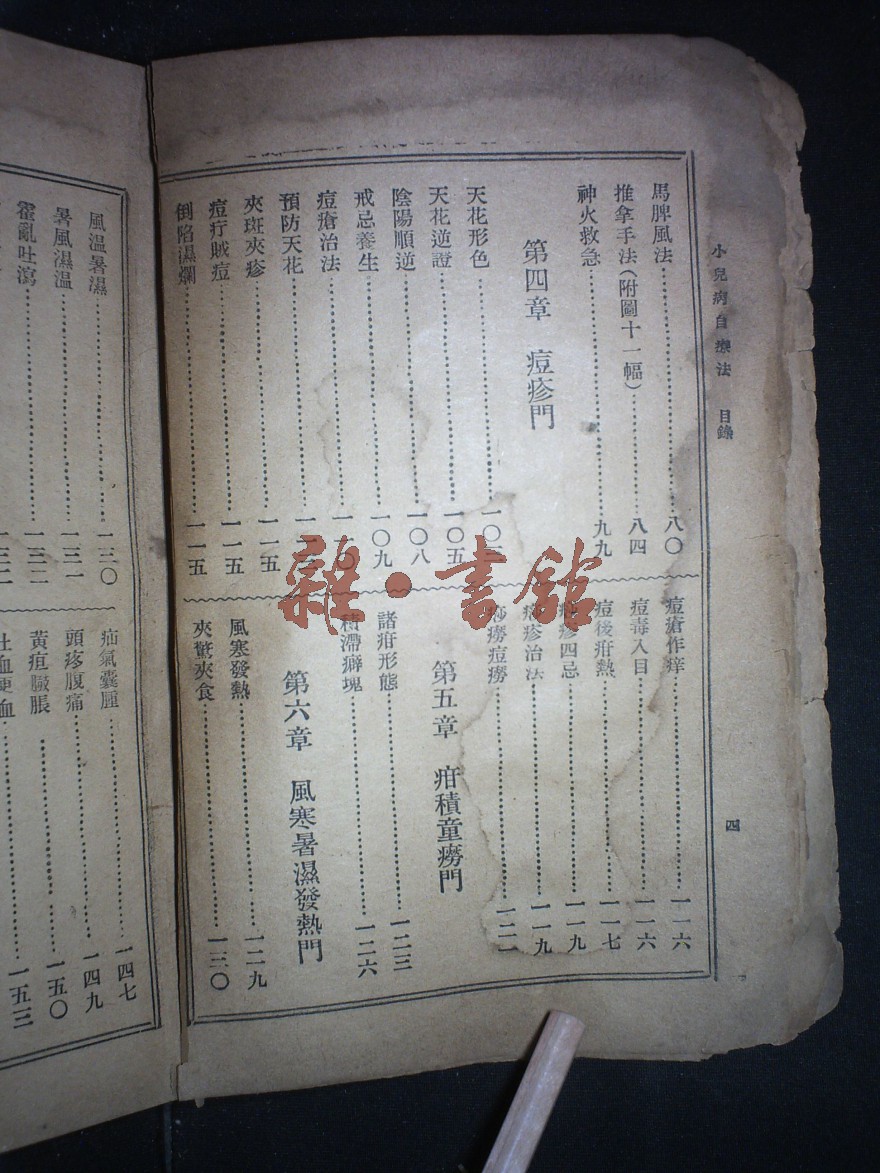 小兒病自療法　目錄
四
馬脾風法……八〇
推拿手法(附圖十一幅)……八四
神火救急……九九
第四章　痘疹門
天花形色……一〇
天花逆證……一〇五
陰陽順逆……一〇八
戒忌養生……一〇九
痘瘡治法……一一〇
預防天花……一一
夾斑夾疹……一一五
痘疔賊痘……一一五
倒陷濕爛……一一五
痘瘡作痒……一一六
痘毒入目……一一六
痘後疳熱……一一七
疹四忌……一一九
疹治法……一一九
痧癆痘癆……一二一
第五章　疳積童癆門
諸疳形態……一二三
積滯癖塊……一二六
第六章　風寒暑濕發熱門
風寒發熱……一二九
夾驚夾食……一三〇
風温暑濕……一三〇
暑風濕温……一三一
霍亂吐瀉……一三二
疝氣囊腫……一四七
頭疼腹痛……一四九
黃疸臌脹……一五〇
吐血便血……一五三
雜·書館